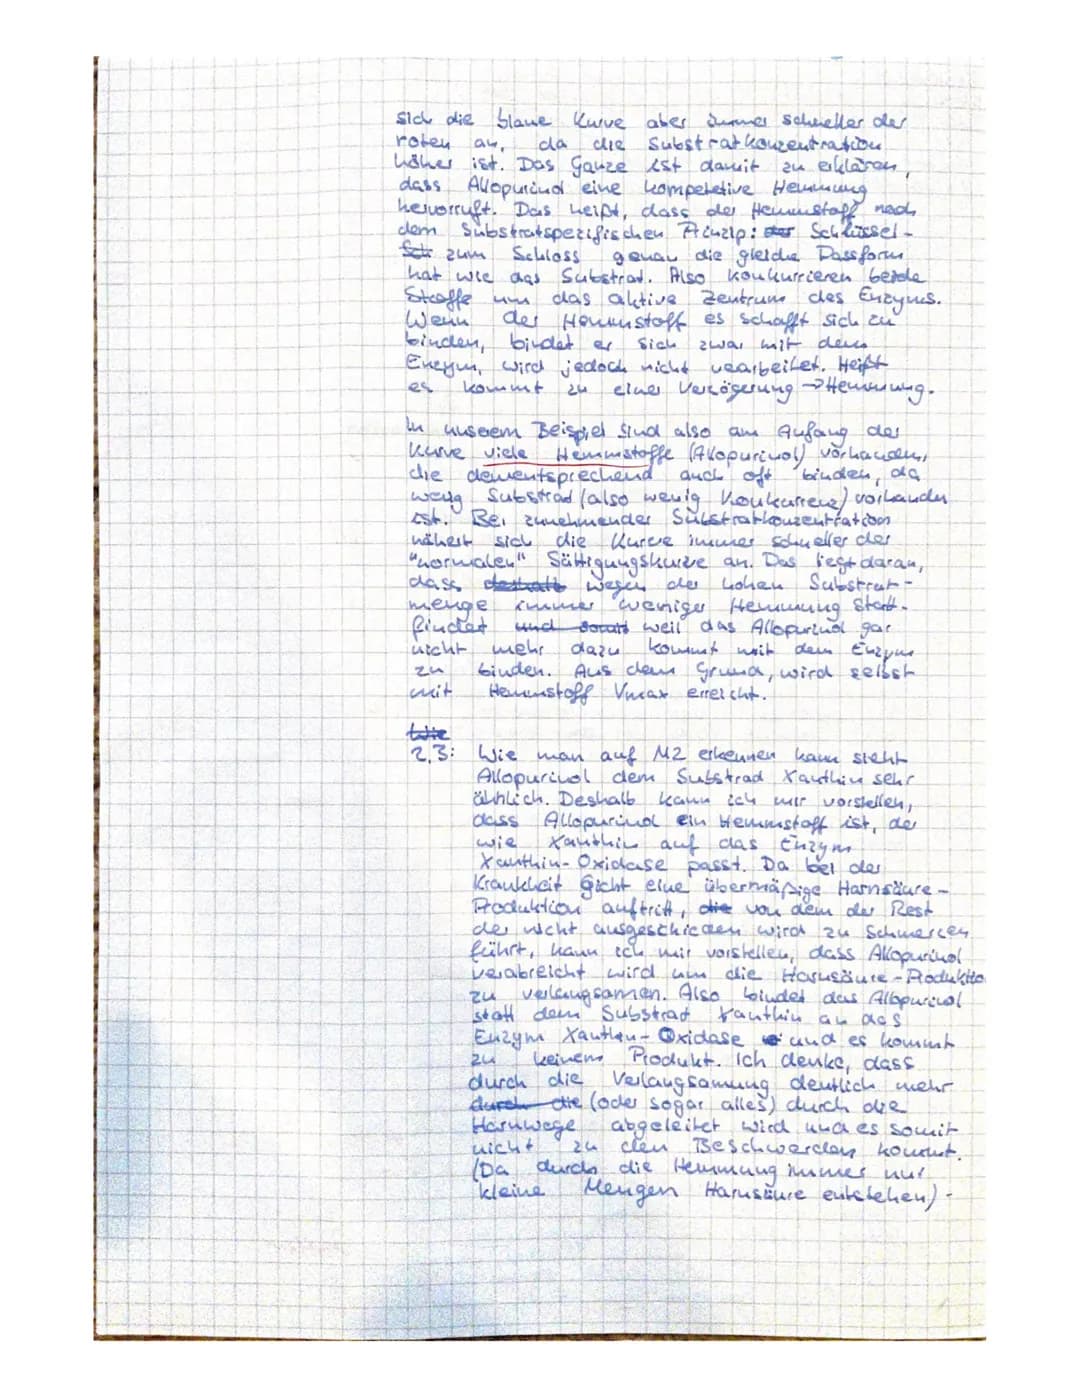 sich die blaue Kurve aber immer schneller der
roten an, da die Substratkonzentration
höher ist. Das Ganze ist damit zu erklären,
dass Allopurinol eine kompetetive Hemmung
hervorruft. Das heißt, dass der Hemmstoff nach
dem Substratspezifischen Prinzip: der Schlüssel-
Sch zum Schloss genau die gleiche Passform
hat wie das Substrad. Also konkurrieren beide
Stoffe um das aktive Zentrum des Enzyms.
Wenn der Hemmstoff es schafft sich zu
binden, bindet er sich zwar mit dem
Enzym, wird jedoch nicht verarbeitet. Heißt
es kommt zu einer Verzögerung → Hemmung.
In unserem Beispiel sind also am Anfang der
Kurve viele Hemmstoffe (Allopurinol) vorhanden,
die dementsprechend auch oft binden, da
wenig Substrad (also wenig Konkurrenz) vorhanden
ist. Bei zunehmender Substratkonzentration
nähert sich die Kurve immer schneller der
"normalen" Sättigungskurve an. Das liegt daran,
dass deshalb wegen der hohen Substrat-
menge immer weniger Hemmung statt-
findet und somit weil das Allopurinol gar
nicht mehr dazu kommt mit dem Enzym
zu binden. Aus dem Grund, wird selbst
mit Hemmstoff Vmax erreicht.
Wie
2.3: Wie man auf M2 erkennen kann sieht
Allopurinol dem Substrad Xanthin sehr
ähnlich. Deshalb kann ich mir vorstellen,
dass Allopurinol ein Hemmstoff ist, der
wie Xanthin auf das Enzym
Xanthin-Oxidase passt. Da bei der
Krankheit Gicht eine übermäßige Harnsäure-
Produktion auftritt, die von dem der Rest
der nicht ausgeschieden wird zu Schmerzen
führt, kann ich mir vorstellen, dass Allopurinol
verabreicht wird um die Harnsäure-Produktio
zu verlangsamen. Also bindet das Allopurinol
statt dem Substrad Xanthin an das
Enzym Xanthin-Oxidase und es kommt
zu keinem Produkt. Ich denke, dass
durch die Verlangsamung deutlich mehr
durch die (oder sogar alles) durch die
Harnwege abgeleitet wird und es somit
nicht zu den Beschwerden kommt.
(Da durch die Hemmung immer nur
kleine Mengen Harnsäure entstehen) -